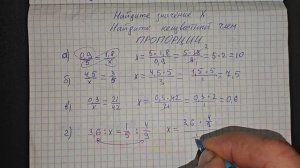 Найдите значения X
Найдите неизвестный член
ПРОПОРЦИИ
а) 0,9/5 = 1,8/x x = 5·1,8/0,9 = 5·18/9 = 5·2 = 10
б) 4,5/x = 3/5 x = 4,5·5/3 = 1,5·5/1 = 7,5
в) 0,3/x = 21/42 x = 0,3·42/21 = 0,3·2/1 = 0,6
г) 3,6 : x = 1/9 : 4/9 x = 3,6 · 4/9